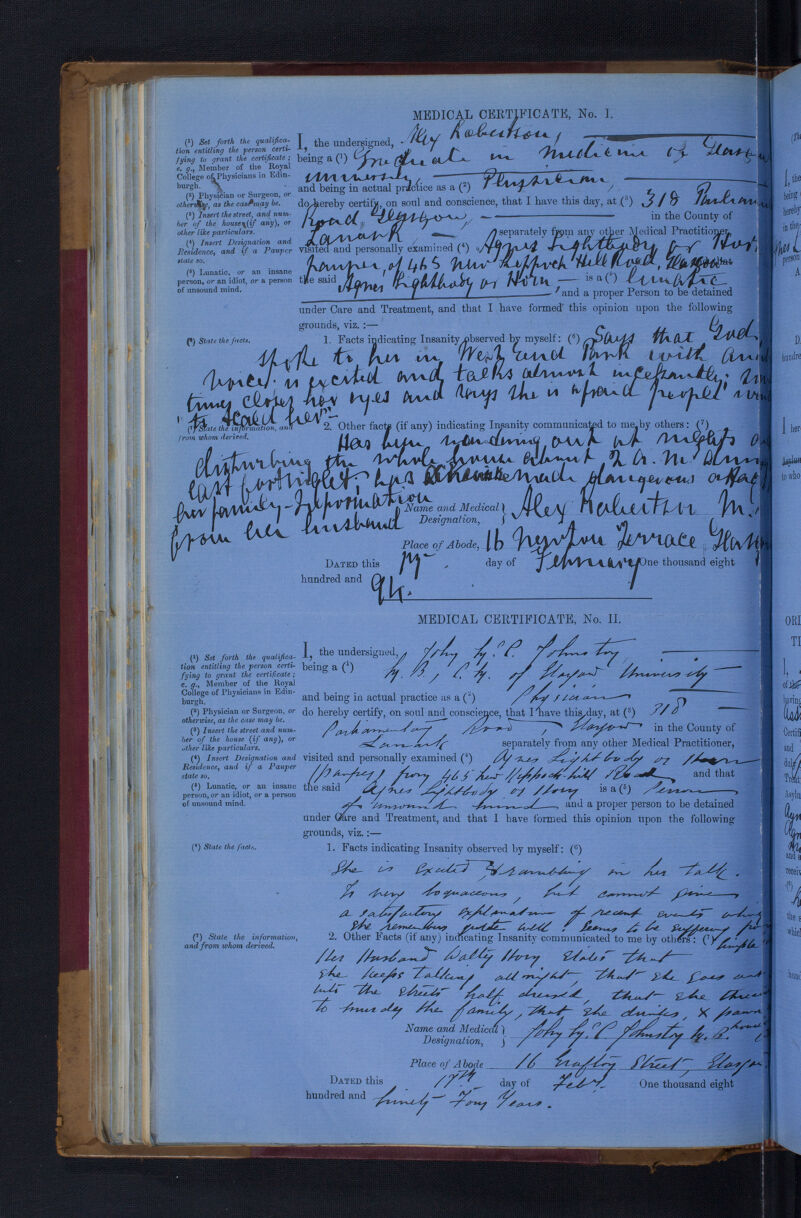 MEDICAL CERTIFICATE, No. I.
(¹) Set forth the qualifica-
tion entitling the person certi-
fying to grant the certificate ;
e. g., Member of the Royal
College of Physicians in Edin-
burgh.
(²) Physician or Surgeon, or
otherwise, as the case may be.
(³) Insert the street, and num-
ber of the house (if any), or
other like particulars.
(⁴) Insert Designation and
Residence, and if a Pauper
state so.
(⁵) Lunatic, or an insane
person, or an idiot, or a person
of unsound mind.
I, the undersigned, Alex Robertson,
being a (¹) Graduate in Medicine of Glasgow
University,
and being in actual practice as a (²) Physician,
do hereby certify, on soul and conscience, that I have this day, at (³) 318
Road, Glasgow, in the County of
Lanark separately from any other Medical Practitioner,
visited and personally examined (⁴) Agnes Lightbody or
pauper, of 465 New Keppoch Hill Road, Glasgow
the said Agnes Lightbody or is a (⁵) lunatic
and a proper Person to be detained
under Care and Treatment, and that I have formed this opinion upon the following
grounds, viz. :—
(⁶) State the facts.
1. Facts indicating Insanity observed by myself: (⁶) Says that God
spoke to her in West End Park with
voice. is excited and talks almost incessantly;
closes her eyes and says she is afraid people
to scald her".
(⁷) State the information, and
from whom derived.
2. Other facts (if any) indicating Insanity communicated to me by others: (⁷)
Has been wandering out at nights
disturbing the whole house about 2 a.m.
last fortnight. has made dangerous
her family – Information
from her husband
Name and Medical Designation, Alex Robertson M.
Place of Abode, 16 Newton Terrace
DATED this 17 day of February One thousand eight
hundred and 94.
MEDICAL CERTIFICATE, No. II.
(¹) Set forth the qualifica-
tion entitling the person certi-
fying to grant the certificate ;
e. g., Member of the Royal
College of Physicians in Edin-
burgh.
(²) Physician or Surgeon, or
otherwise, as the case may be.
(³) Insert the street and num-
ber of the house (if any), or
other like particulars.
(⁴) Insert Designation and
Residence, and if a Pauper
state so,
(⁵) Lunatic, or an insane
person, or an idiot, or a person
of unsound mind.
I, the undersigned, John Johnston,
being a (¹) M.B., C.M. of Glasgow University
and being in actual practice as a (²) Physician
do hereby certify, on soul and conscience, that I have this day, at (³) 318
Parliamentary Road, Glasgow in the County of
Lanark separately from any other Medical Practitioner,
visited and personally examined (⁴) Agnes Lightbody or
(pauper) from 465 New Keppoch hill Road and that
the said Agnes Lightbody or is a (⁵) Person
of unsound mind and a proper person to be detained
under Care and Treatment, and that I have formed this opinion upon the following
grounds, viz. :—
(⁶) State the facts.
1. Facts indicating Insanity observed by myself: (⁶)
She is excited & rambling in her talk.
Is very loquacious, but cannot give
a satisfactory explanation of recent events
She remembers quite well. Seems to be suffering
(⁷) State the information,
and from whom derived.
2. Other Facts (if any) indicating Insanity communicated to me by others: (⁷)
Her Husband states that
she keeps talking all night, that she goes out
into the streets half dressed, that she
to murder the family, that she drinks, &
Name and Medical Designation, John Johnston M.B.
Place of Abode 16 Grafton Street, Glasgow
DATED this 17th day of Feby. One thousand eight
hundred and ninety Four Years.